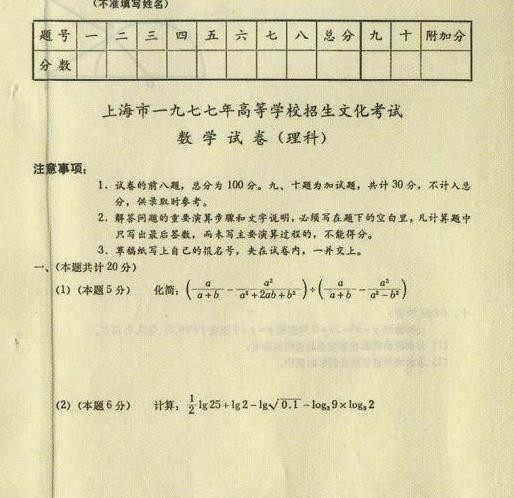 (不准填写姓名)
题号 一 二 三 四 五 六 七 八 总分 九 十 附加分
分数
上海市一九七七年高等学校招生文化考试
数学试卷(理科)
注意事项:
1. 试卷的前八题,总分为100分。九、十题为加试题,共计30分,不计入总
分,供录取时参考。
2. 解答问题的重要演算步骤和文字说明,必须写在题下的空白里,凡计算题中
只写出最后答数,而未写主要演算过程的,不能得分。
3. 草稿纸写上自己的报名号,夹在试卷内,一并交上。
一、(本题共计20分)
(1) (本题5分) 化简:(a/(a+b) − a²/(a²+2ab+b²))÷(a/(a+b) − a²/(a²−b²))
(2) (本题6分) 计算:1/2 lg25+lg2−lg√0.1−log₂9×log₃2